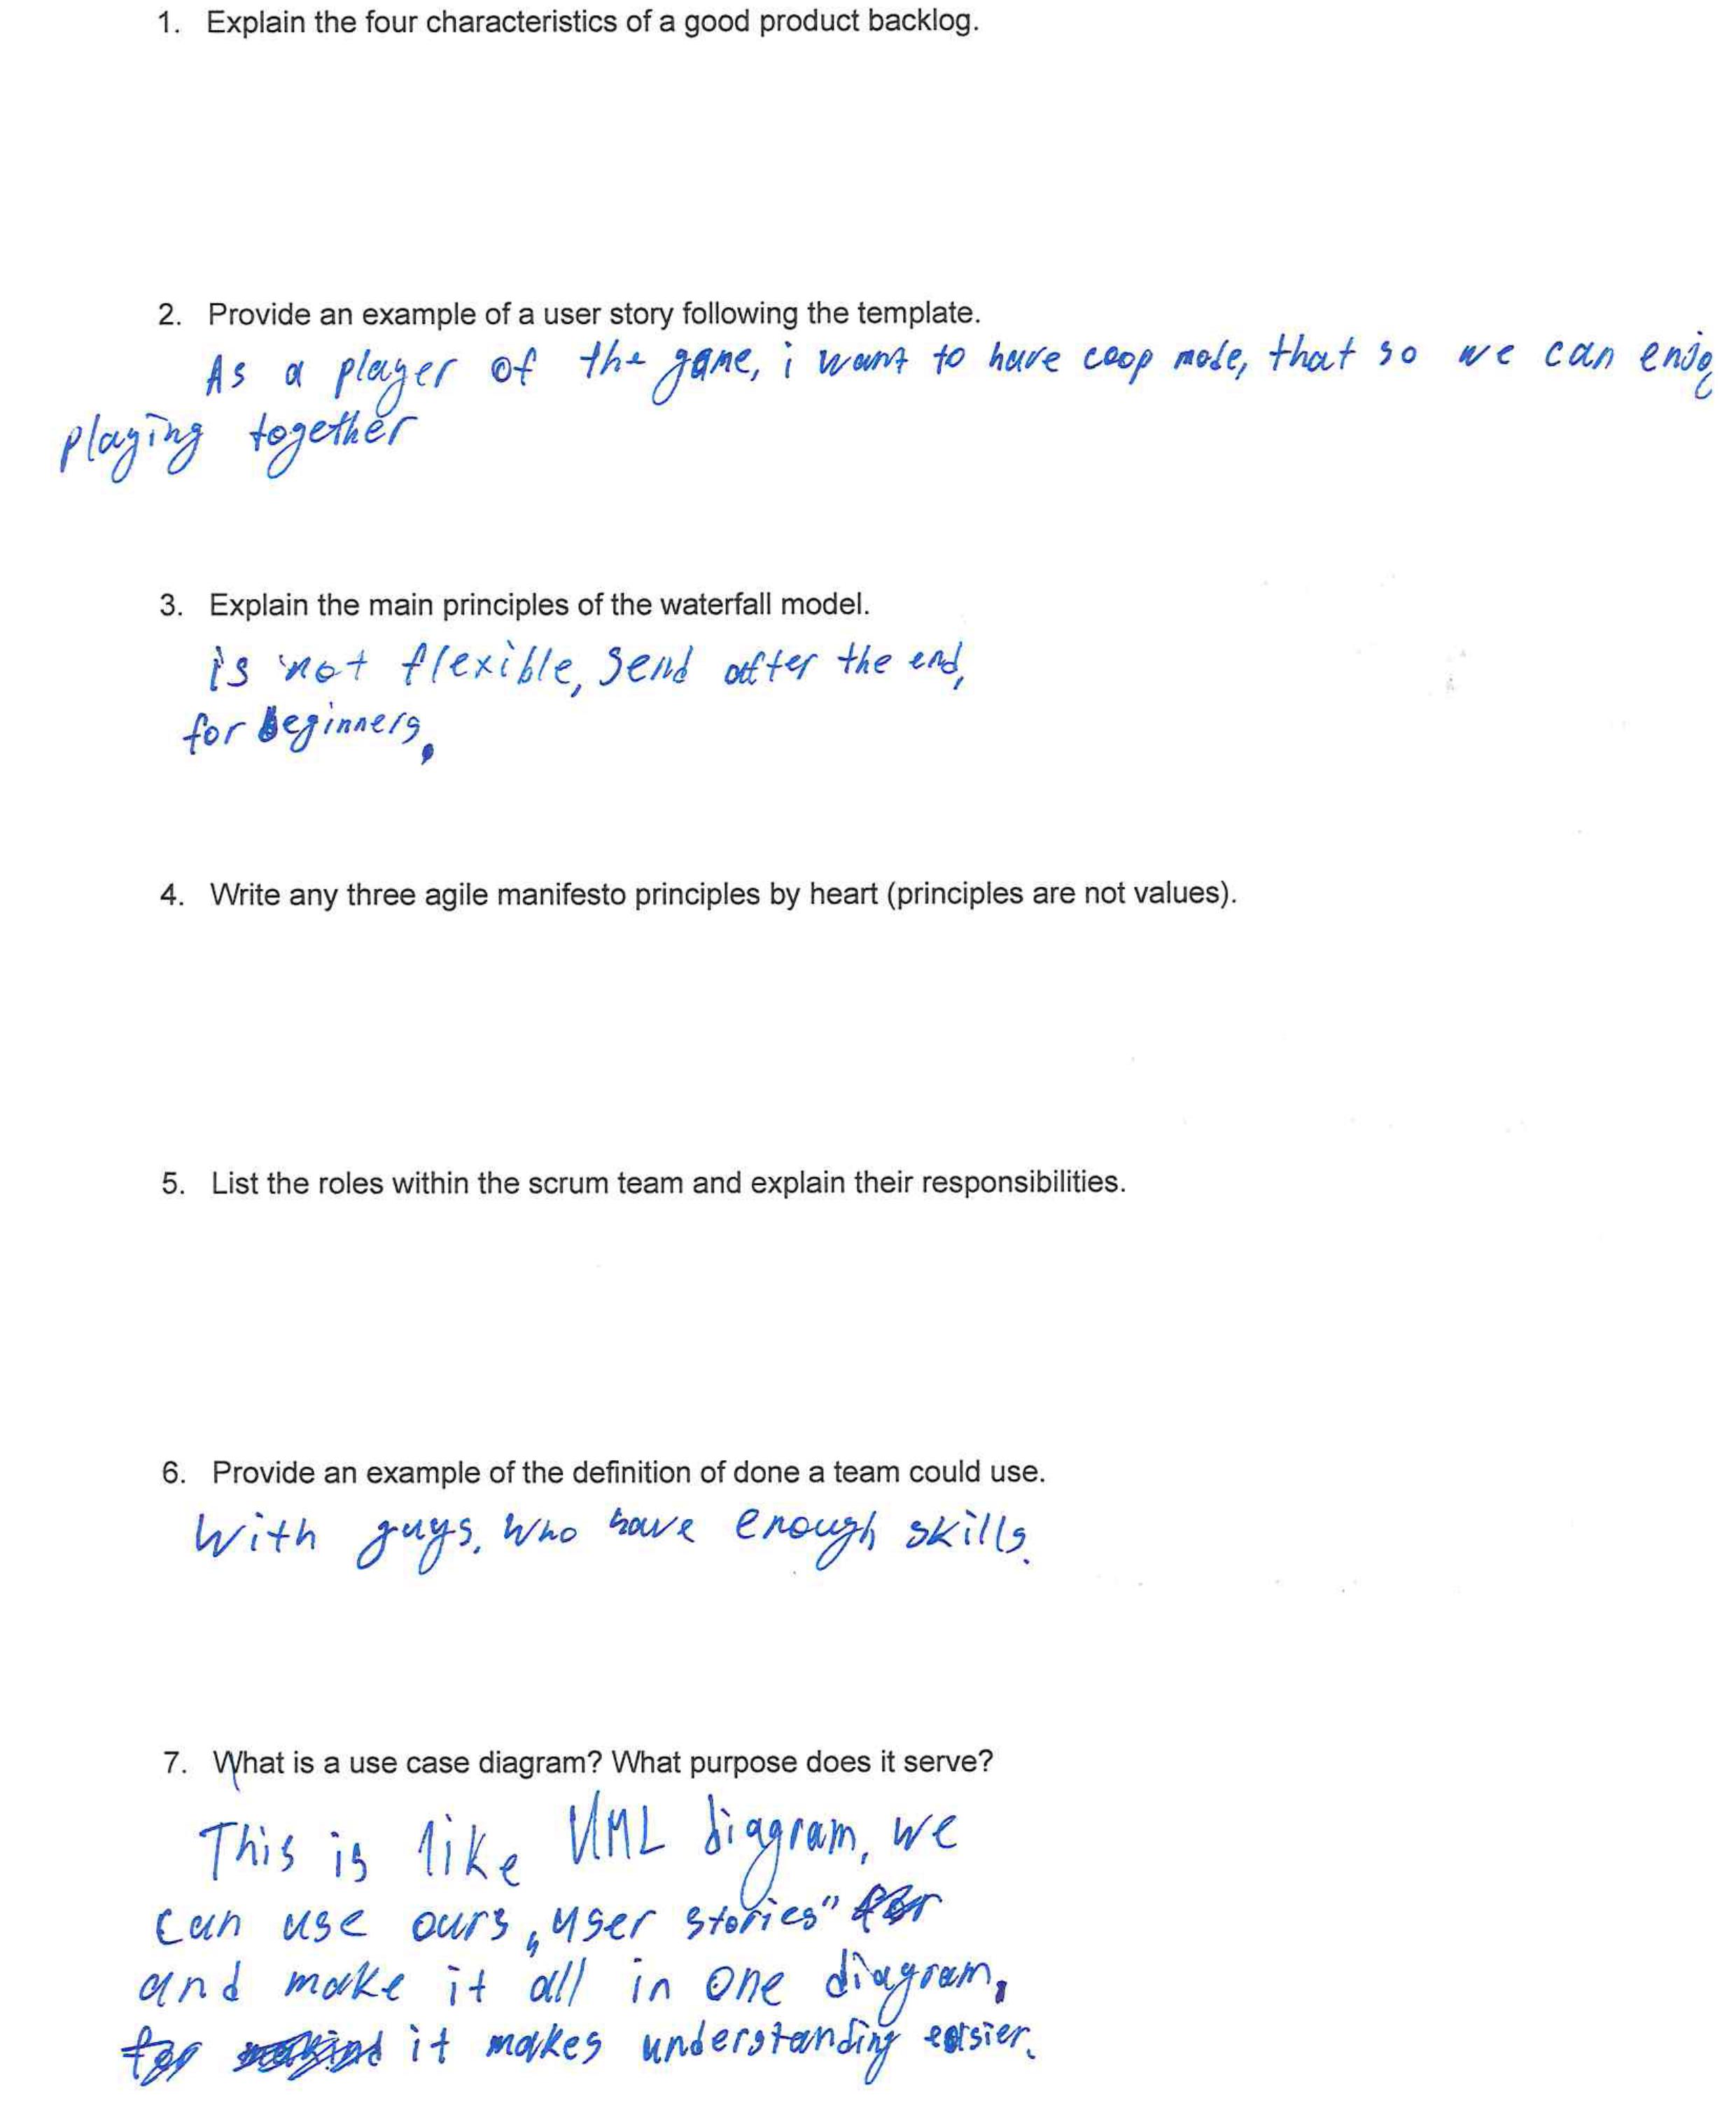 1. Explain the four characteristics of a good product backlog.
2. Provide an example of a user story following the template.
As a player of the game, i want to have coop mode, that so we can enjoy
playing together
3. Explain the main principles of the waterfall model.
is not flexible, send after the end,
for beginners.
4. Write any three agile manifesto principles by heart (principles are not values).
5. List the roles within the scrum team and explain their responsibilities.
6. Provide an example of the definition of done a team could use.
With guys, who have enough skills.
7. What is a use case diagram? What purpose does it serve?
This is like UML diagram, we
can use ours „user stories”
and make it all in one diagram,
it makes understanding easier.